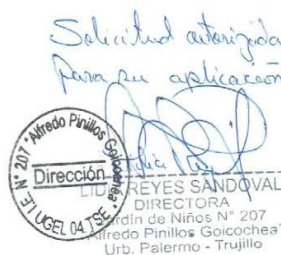 Solicitud autorizada
para su aplicación
I.E. N° 207 "Alfredo Pinillos Goicochea"
Dirección
UGEL 04 TSE
REYES SANDOVAL
DIRECTORA
Jardín de Niños N° 207
Alfredo Pinillos Goicochea"
Urb. Palermo - Trujillo